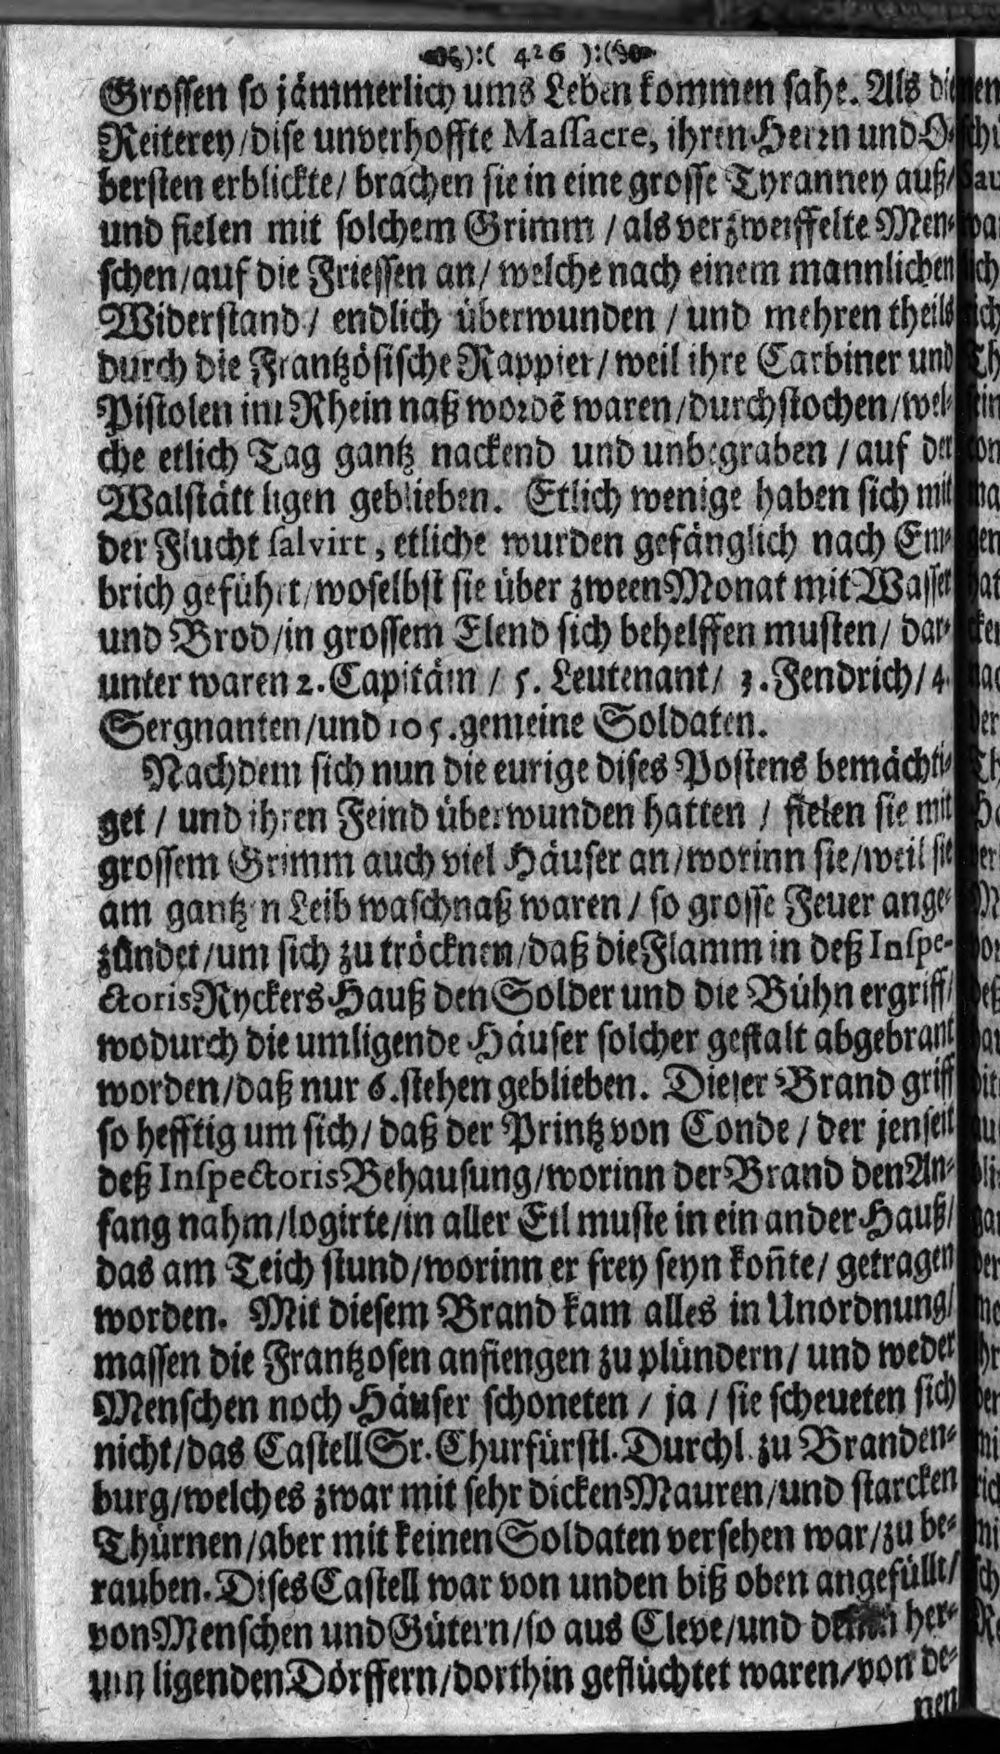 ):( 426 ):(
Grossen so jämmerlich ums Leben kommen sahe. Als die
Reiterey/dise unverhoffte Massacre, ihren Herrn und O-
bersten erblickte/ brachen sie in eine grosse Tyranney auß/
und fielen mit solchem Grimm / als verzweiffelte Men-
schen/auf die Friessen an/ welche nach einem mannlichen
Widerstand/ endlich überwunden / und mehren theils
durch die Frantzösische Rappier/ weil ihre Carbiner und
Pistolen im Rhein naß wordē waren/durchstochen/wel-
che etlich Tag gantz nackend und unbegraben / auf der
Walstätt ligen geblieben. Etlich wenige haben sich mit
der Flucht salvirt, etliche wurden gefänglich nach Em-
brich geführt/woselbst sie über zween Monat mit Wasser
und Brod/in grossem Elend sich behelffen musten/ dar-
unter waren 2. Capitäin / 5. Leutenant/ 3. Fendrich/ 4.
Sergnanten/und 105. gemeine Soldaten.
Nachdem sich nun die eurige dises Postens bemächti-
get / und ihren Feind überwunden hatten / fielen sie mit
grossem Grimm auch viel Häuser an/worinn sie/weil sie
am gantzen Leib waschnaß waren / so grosse Feuer ange-
zündet/um sich zu tröcknen/daß die Flamm in deß Inspe-
ctoris Ryckers Hauß den Solder und die Bühn ergriff/
wodurch die umligende Häuser solcher gestalt abgebrant
worden/daß nur 6. stehen geblieben. Dieser Brand griff
so hefftig um sich/ daß der Printz von Conde / der jenseit
deß Inspectoris Behausung/worinn der Brand den An-
fang nahm/logirte/in aller Eil muste in ein ander Hauß/
das am Teich stund/worinn er frey seyn koñte/ getragen
worden. Mit diesem Brand kam alles in Unordnung/
massen die Frantzosen anfiengen zu plündern/ und weder
Menschen noch Häuser schoneten / ja / sie scheueten sich
nicht/das Castell Sr. Churfürstl. Durchl. zu Branden-
burg/welches zwar mit sehr dicken Mauren/und starcken
Thürnen/aber mit keinen Soldaten versehen war/zu be-
rauben. Dises Castell war von unden biß oben angefüllt/
von Menschen und Gütern/so aus Cleve/und her-
um ligenden Dörffern/dorthin geflüchtet waren/von de-
nen